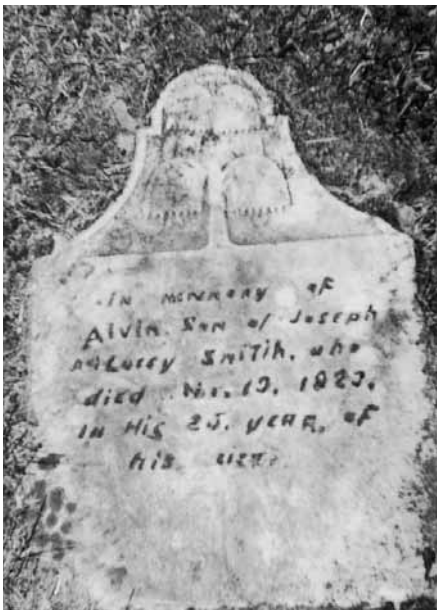 In memory of
Alvin, Son of Joseph
& Lucey Smitih, who
died Nov. 19, 1823,
In His 25, year, of
his